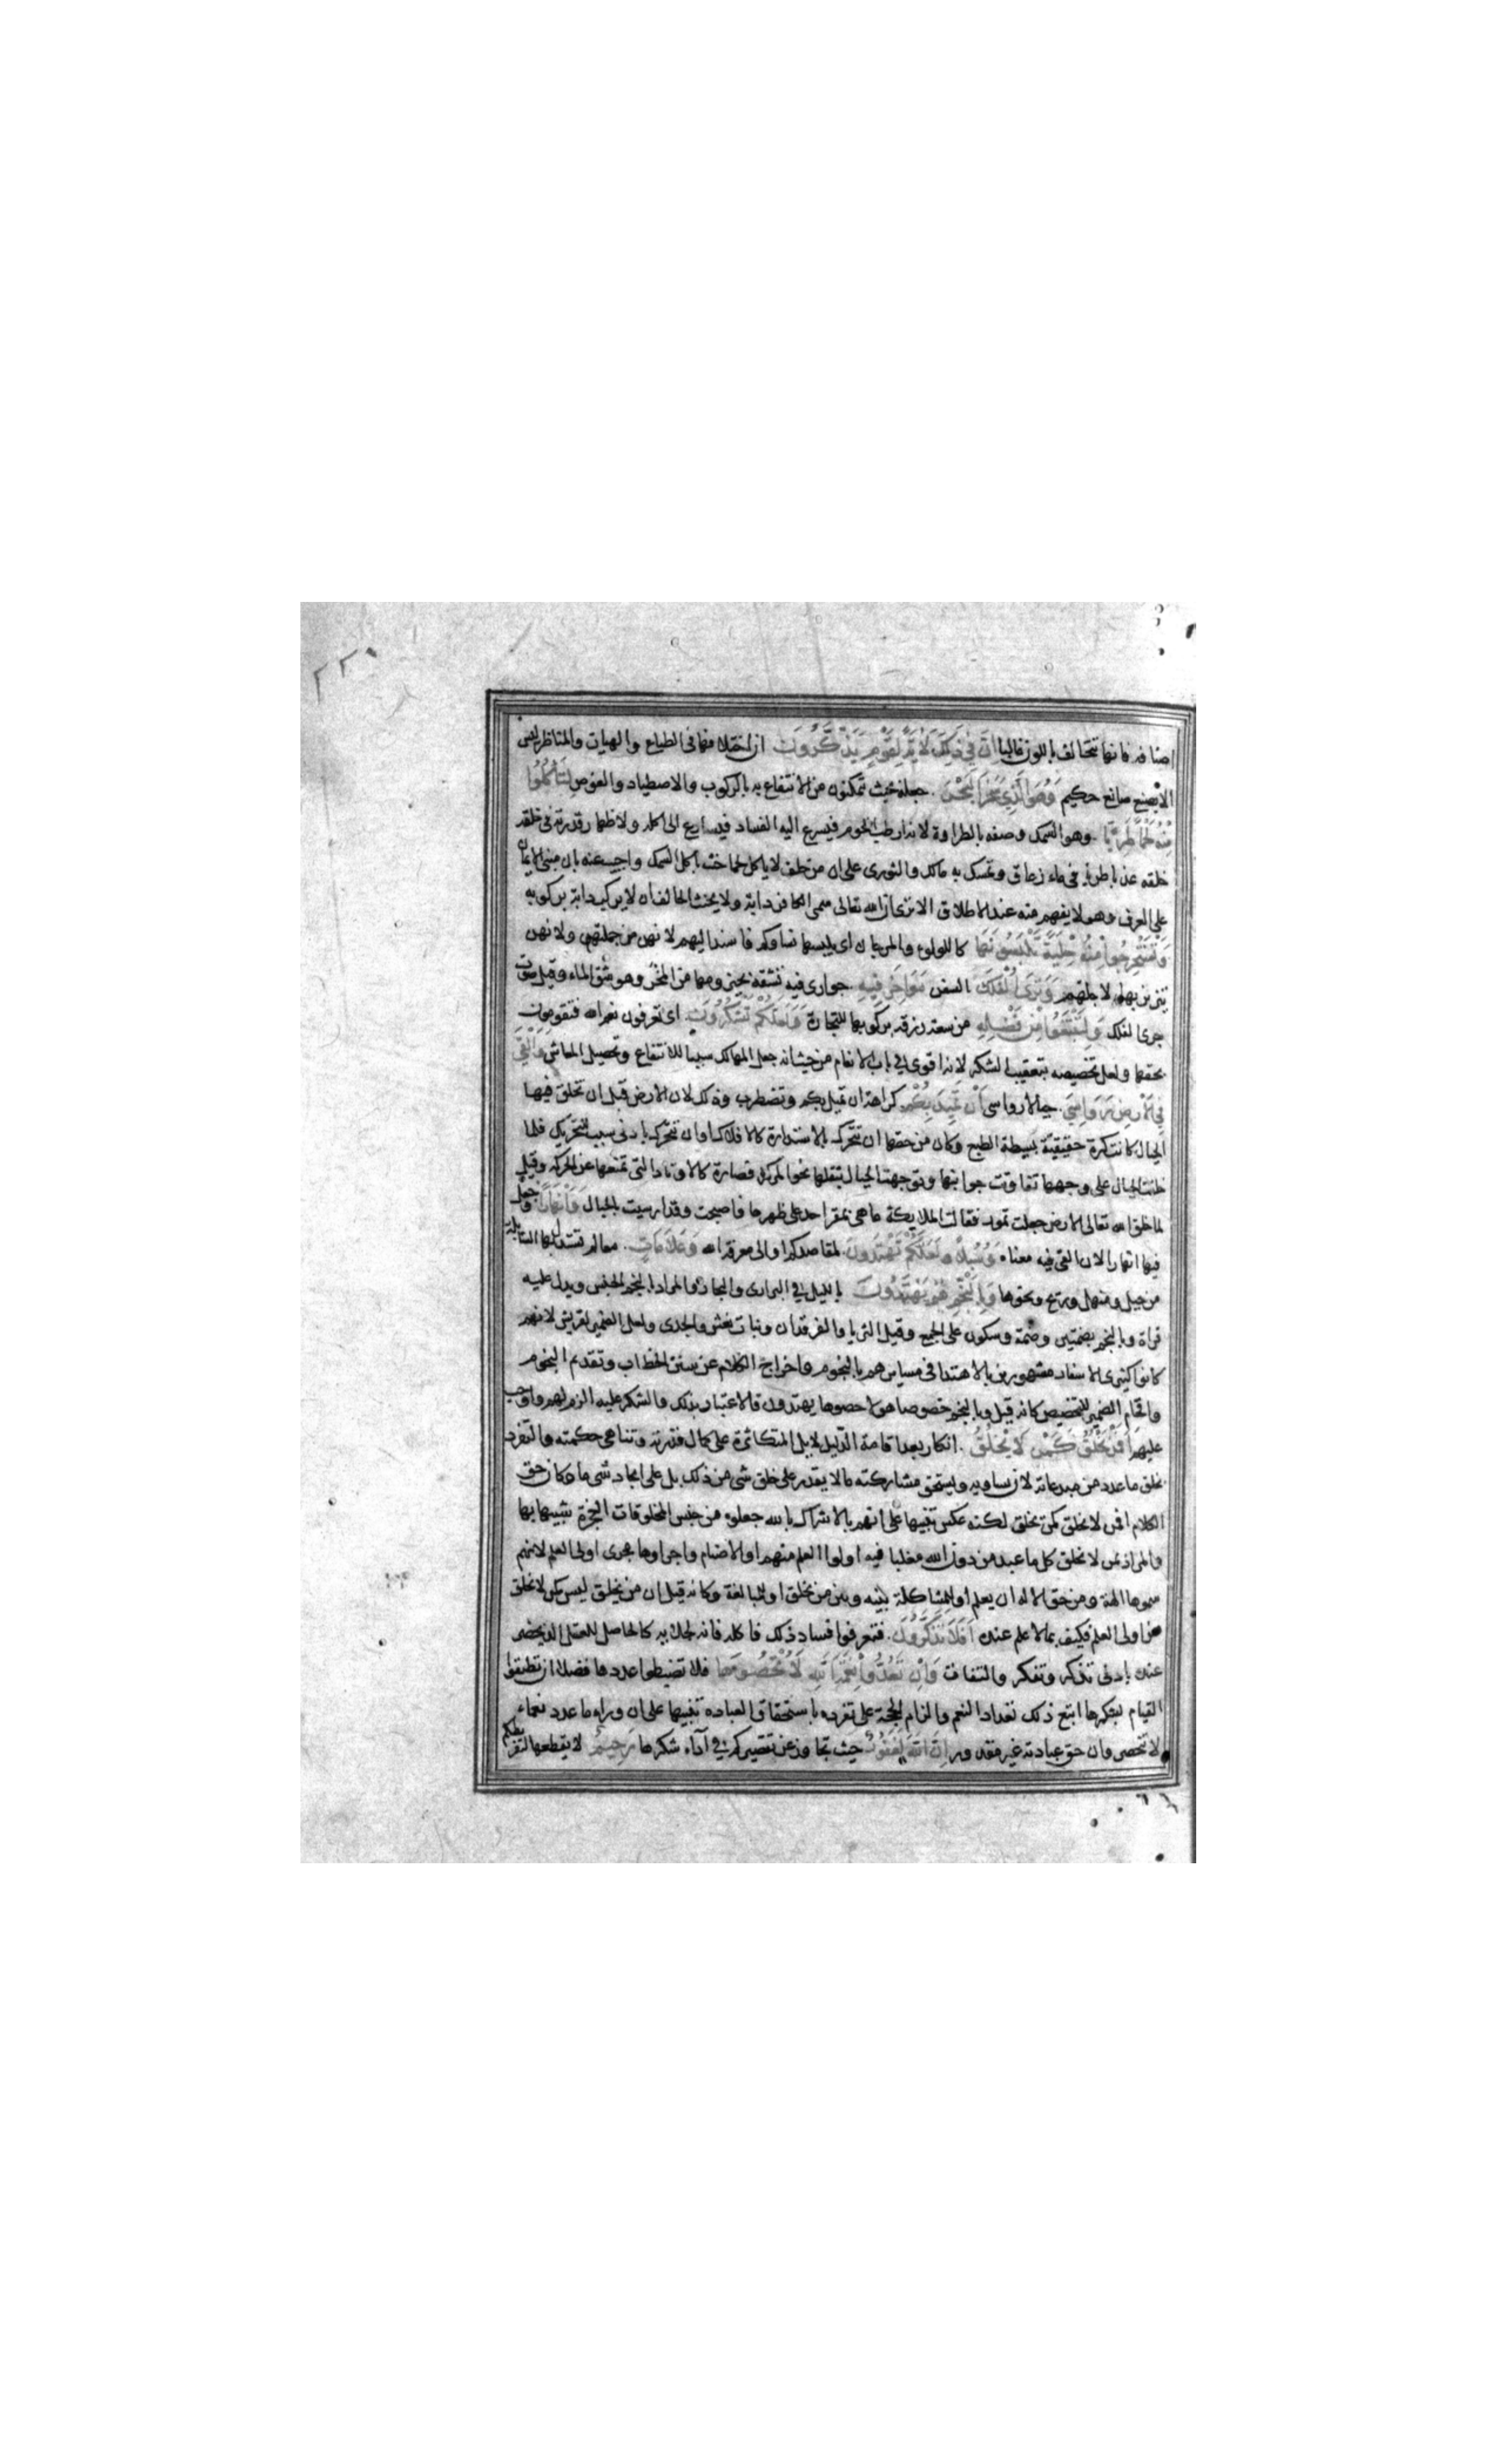 ٢٢٠
اصنافه فانها تتخالف باللون غالبا ان في ذلك لاية لقوم يذكرون ان اختلافها في الطباع والهيات والمناظر ليس
الا بصنع صانع حكيم وهو الذي سخر البحر جعله بحيث تمكنون من الانتفاع به بالركوب والاصطياد والغوص لتأكلوا
منه لحما طريا وهو السمك وصفه بالطراوة لانه ارطب اللحوم فيسرع اليه الفساد فيسارع الى اكله ولاظهار قدرته في خلقه
خلقه عذبا طريا في ماء زعاق وتمسك به مالك والثورى على ان من حلف لا ياكل لحما حنث باكل السمك واجيب عنه بان مبنى الايمان
على العرف وهو لا يفهم منه عند الاطلاق الا ترى ان الله تعالى سمى الكافر دابة ولا يحنث الحالف ان لا يركب دابة بركوبه
وتستخرجوا منه حلية تلبسونها كاللولوء والمرجان اى يلبسها نساوكم فاسند اليهم لانهن من جملتهم ولانهن
يتزين بها لاجلهم وترى الفلك السفن مواخر فيه جوارى فيه تشقه بحيزومها من المخر وهو شق الماء وقيل صوت
جرى الفلك ولتبتغوا من فضله من سعة رزقه بركوبها للتجارة ولعلكم تشكرون اى تعرفون نعم الله فتقومون
بحقها ولعل تخصيصه بتعقيب الشكر لانه اقوى في باب الانعام من حيث انه جعل المهالك سببا للانتفاع وتحصيل المعاش والقى
في الارض رواسي جبالا رواسى ان تميد بكم كراهة ان تميل بكم وتضطرب وذلك لان الارض قبل ان تخلق فيها
الجبال كانت كرة حقيقية بسيطة الطبع وكان من حقها ان تتحرك بالاستدارة كالافلاك او ان تتحرك بادنى سبب للتحريك فلما
خلقت الجبال على وجهها تفاوتت جوانبها وتوجهت الجبال بثقلها نحو المركز فصارت كالاوتاد التى تمنعها عن الحركه وقيل
لما خلق الله تعالى الارض جعلت تمور فقالت الملايكة ما هى بمقر احد على ظهرها فاصبحت وقد ارسيت بالجبال وانهارا وجعل
فيها انهارا لان القى فيه معناه وسبلا لعلكم تهتدون لمقاصدكم او الى معرفة الله وعلامات معالم تستدل بها السابلة
من جبل ومنهل وريح ونحوها وبالنجم هم يهتدون بالليل في البرارى والبحار والمراد بالنجم الجنس ويدل عليه
قراة وبالنجم بضمتين وضمة وسكون على الجمع وقيل الثريا والفرقدان وبنات نعش والجدى ولعل الضمير لقريش لانهم
كانوا كثيرى الاسفار مشهورين بالاهتدا في مسايرهم بالنجوم واخراج الكلام عن سنن الخطاب وتقديم النجوم
واقحام الضمير للتخصيص كانه قيل وبالنجم خصوصا هولا خصوصا يهتدون فالاعتبار بذلك والشكر عليه الزم لهم واوجب
عليهم أفمن يخلق كمن لا يخلق انكار بعد اقامة الدليل لايل المتكاثرة على كمال قدرته وتناهى حكمته والتفرد
بخلق ما عدد من مبدعاته لان يساويه ويستحق مشاركته ما لا يقدر على خلق شى من ذلك بل على ايجاد شى ما وكان حق
الكلام افمن لا يخلق كمن يخلق لكنه عكس تنبيها على انهم بالاشراك بالله جعلوه من جنس المخلوقات العجزة شبيها بها
والمراد بمن لا يخلق كل ما عبد من دون الله مغلبا فيه اولوا العلم منهم او الاصنام واجراوها مجرى اولى العلم لانهم
سموها الهة ومن حق الاله ان يعلم او للمشاكلة بينه وبين من يخلق او للمبالغة وكانه قيل ان من يخلق ليس كمن لا يخلق
من اولى العلم فكيف بما لا علم عنده أفلا تذكرون فتعرفوا فساد ذلك فانه لجلائه كالحاصل للعقل الذى يحضر
عنده بادنى تذكر وتفكر والتفات وان تعدوا نعمة الله لا تحصوها فلا تضبطوا عددها فضلا ان تطيقوا
القيام بشكرها اتبع ذلك تعداد النعم والزام الحجة على تفرده باستحقاق العباده تنبيها على ان وراء ما عدد نعماء
لا تحصى وان حق عبادته غير مقدور ان الله لغفور حيث تجاوز عن تقصيركم في آداء شكرها رحيم لا يقطعها لتفريطكم